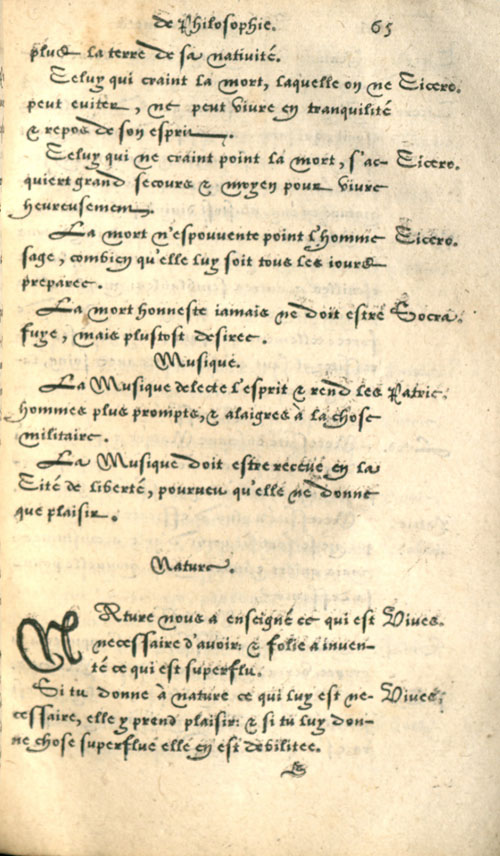 de Philosophie. 65
plus la terre de sa nativité.
Celuy qui craint la mort, laquelle on ne Cicero.
peut eviter, ne peut vivre en tranquilité
& repos de son esprit.
Celuy qui ne craint point la mort, s'ac- Cicero.
quiert grand secours & moyen pour vivre
heureusement.
La mort n'espouvente point l'homme Cicero.
sage, combien qu'elle luy soit tous les iours
preparee.
La mort honneste iamais ne doit estre Socra.
fuye, mais plustost desiree.
Musique.
La Musique delecte l'esprit & rend les Patric.
hommes plus prompts, & alaigres à la chose
militaire.
La Musique doit estre receuë en la
Cité de liberté, pourveu qu'elle ne donne
que plaisir.
Nature.
NAture nous a enseigné ce qui est Vives.
necessaire d'avoir: & folie a inven-
té ce qui est superflu.
Si tu donne à nature ce qui luy est ne- Vives,
cessaire, elle y prend plaisir: & si tu luy don-
ne chose superfluë elle en est debilitee.